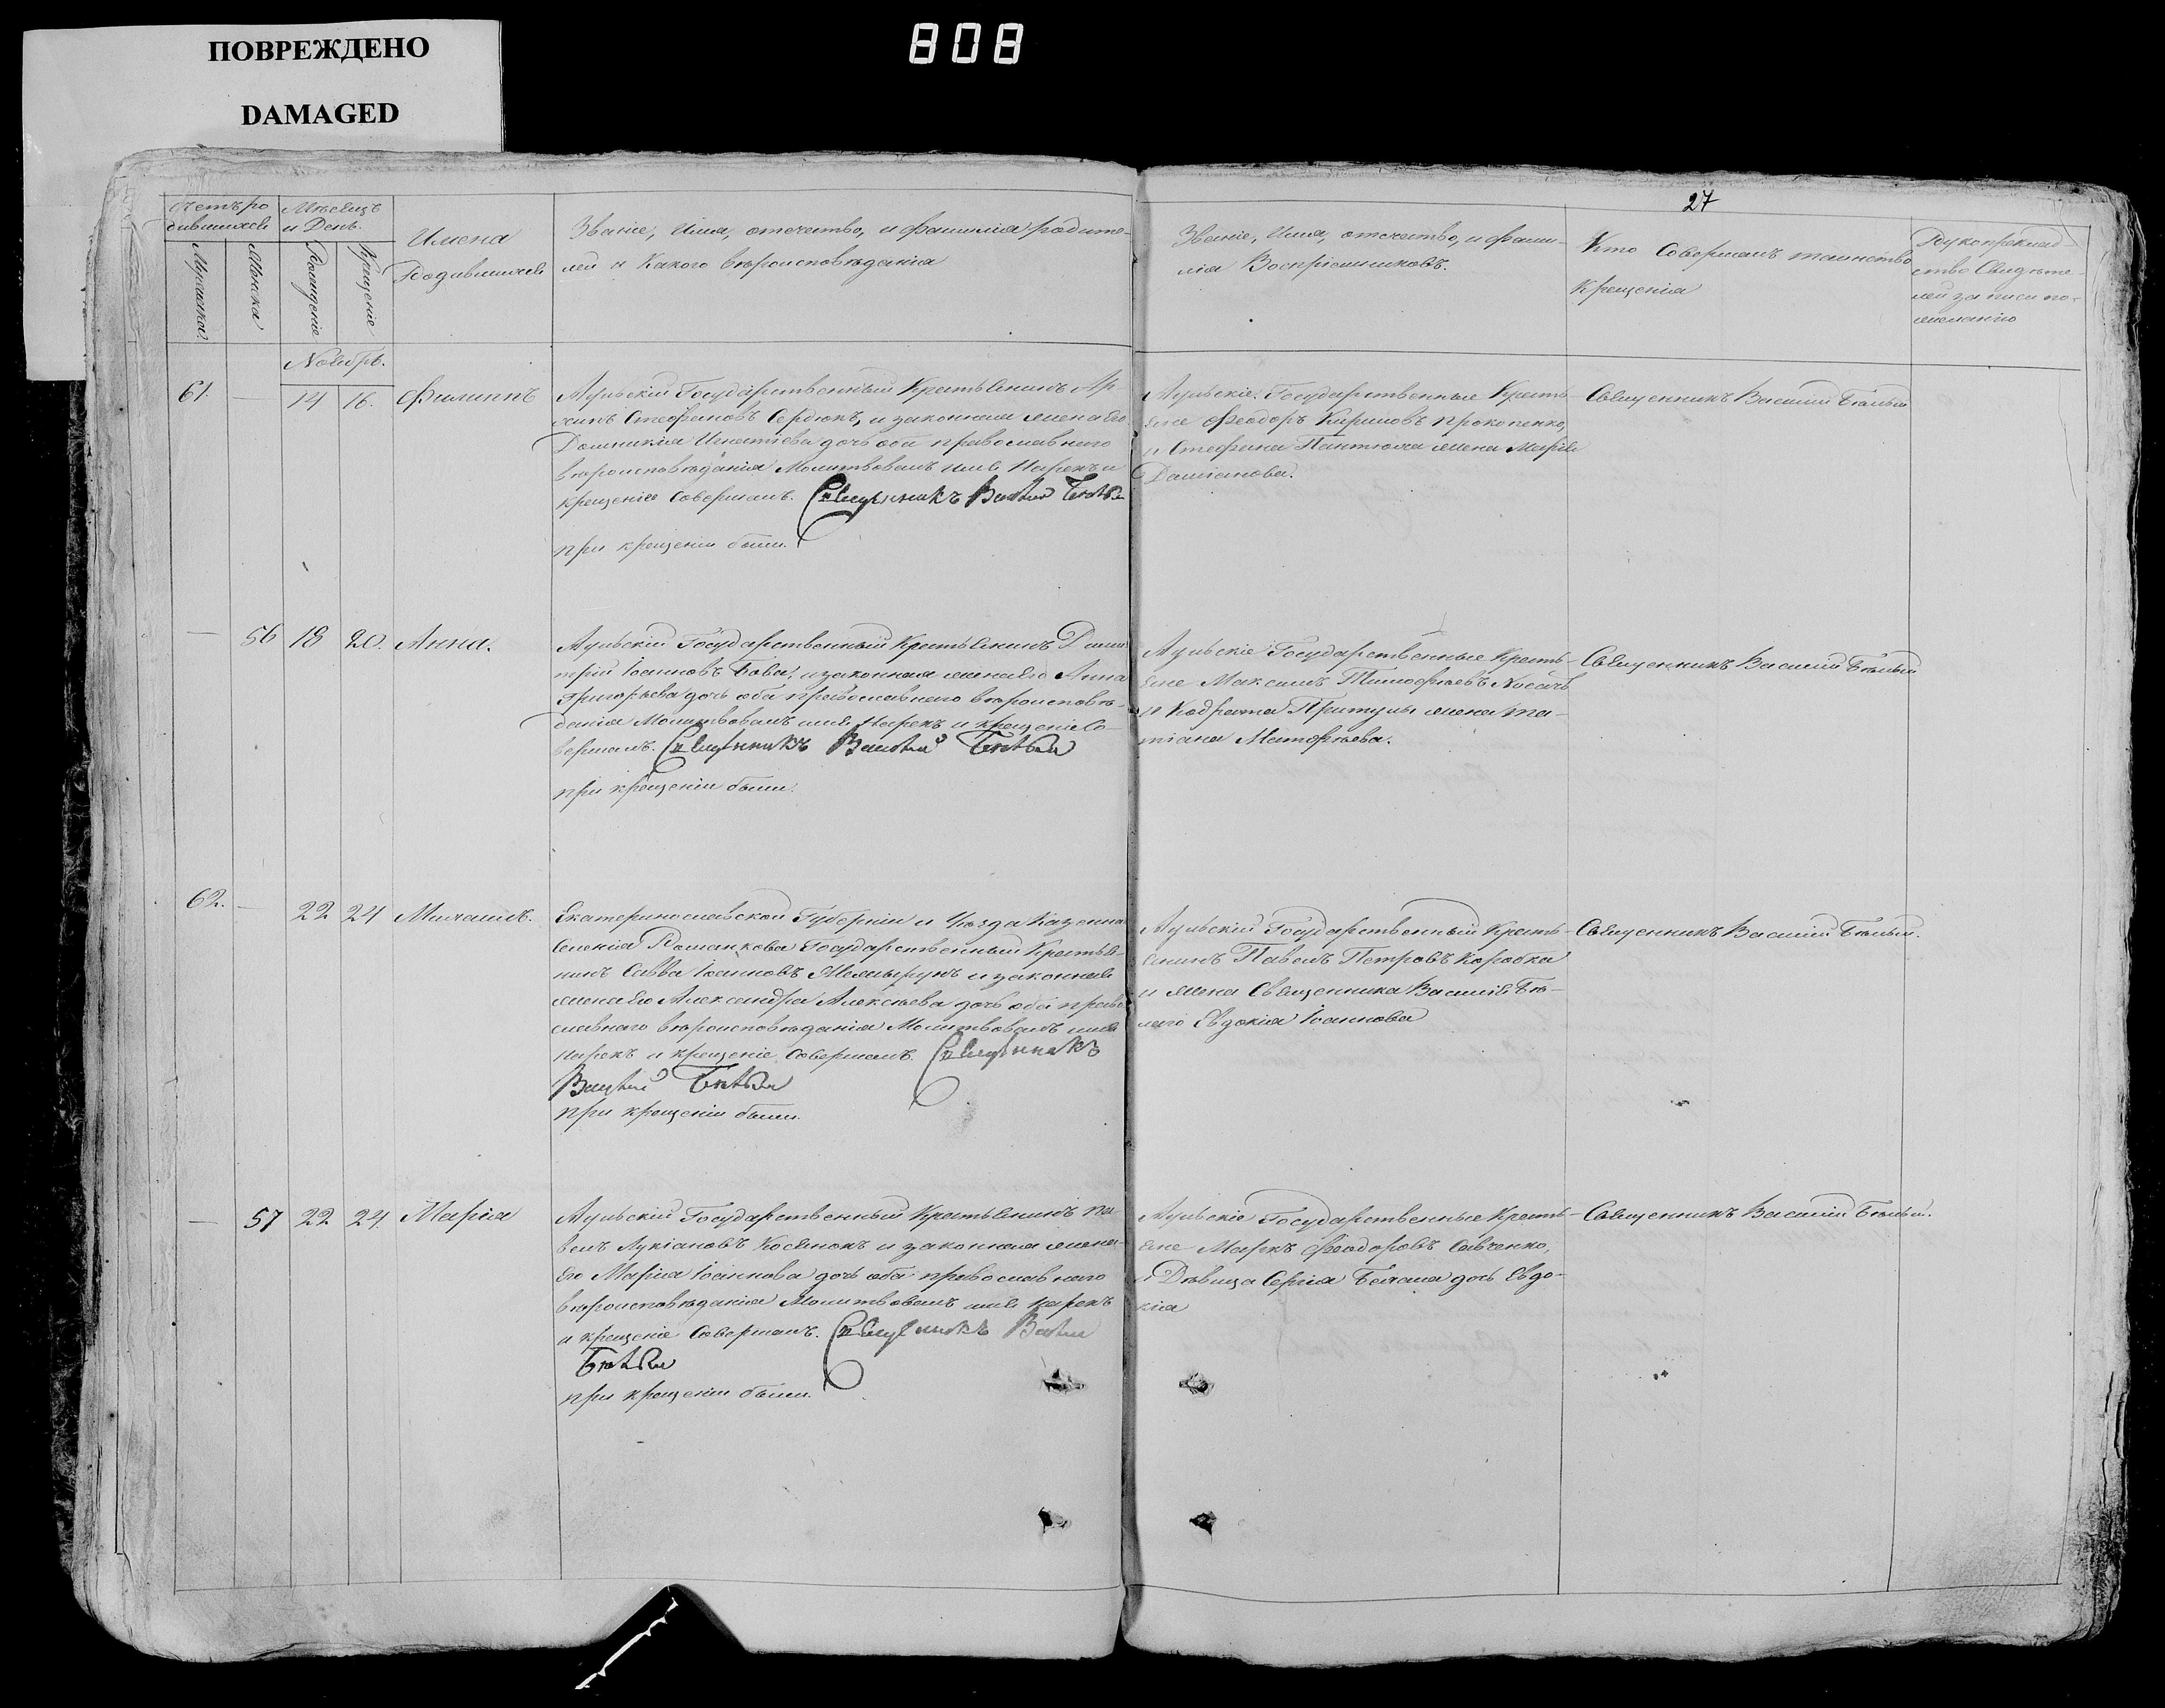 ПОВРЕЖДЕНО
DAMAGED
808
27
Счетъ ро
дившихся
Мѣсяцъ
и День.
Имена
Родившихся
Званіе, Имя, отечество, и фамилія родите-
лей и Какого вѣроисповѣданія
Званіе, Имя, отечество, и фами-
лія Воспріемниковъ.
Кто Совершалъ таинство
Крещенія
Рукоприклад
ство Свидѣте-
лей записи по-
желанію
Мужеска
Женска
Рожденіе
Крещеніе
Ноябрь.
61. — 14 16. Филиппъ
Аульскій Государственный Крестьянинъ Ар-
хипъ Стефановъ Сердюкъ, и законная жена Его
Домникія Игнатіева дочь оба православнаго
вѣроисповѣданія Молитвовалъ имя Нарекъ и
крещеніе Совершалъ. Священникъ Василій Бѣлый
при крещеніи были.
Аульскіе Государственные Кресть-
яне Феодоръ Кириловъ Прокопенко,
и Стефана Пантюла жена Марія
Даміанова.
Священникъ Василій Бѣлый
— 56 18 20. Анна.
Аульскій Государственный Крестьянинъ Дими
трій Іоанновъ Бова, и законная жена Его Анна
Григорьева дочь оба православнаго вѣроисповѣ-
данія Молитвовалъ имя Нарекъ и крещеніе Со-
вершалъ. Священникъ Василій Бѣлый
при крещеніи были.
Аульскіе Государственные Кресть-
яне Максимъ Тимофѣевъ Носачъ
и Кодрата Притулы жена Та-
тіана Матфѣева.
Священникъ Василій Бѣлый
62. — 22 24 Михаилъ.
Екатеринославской Губерніи и Уѣзда Казенна
Селенія Романкова Государственный Крестья-
нинъ Савва Іоанновъ и законная
жена Его Александра Алексѣева дочь оба право
славнаго вѣроисповѣданія Молитвовалъ имя
нарекъ и крещеніе Совершалъ. Священникъ
Василій Бѣлый
при крещеніи были.
Аульскій Государственный Кресть-
янинъ Павелъ Петровъ Коробка
и жена Священника Василія Бѣ-
лаго Евдокія Іоаннова
Священникъ Василій Бѣлый.
— 57 22 24. Марія
Аульскій Государственный Крестьянинъ Па-
велъ Лукіановъ Косянокъ и законная жена
Его Марія Іоаннова дочь оба православнаго
вѣроисповѣданія Молитвовалъ имя нарекъ
и крещеніе Совершалъ. Священникъ Василій
Бѣлый
при крещеніи были.
Аульскіе Государственные Кресть-
яне Маркъ Феодоровъ Савченко,
и Дѣвица Сергія дочь Евдо-
кія
Священникъ Василій Бѣлый.